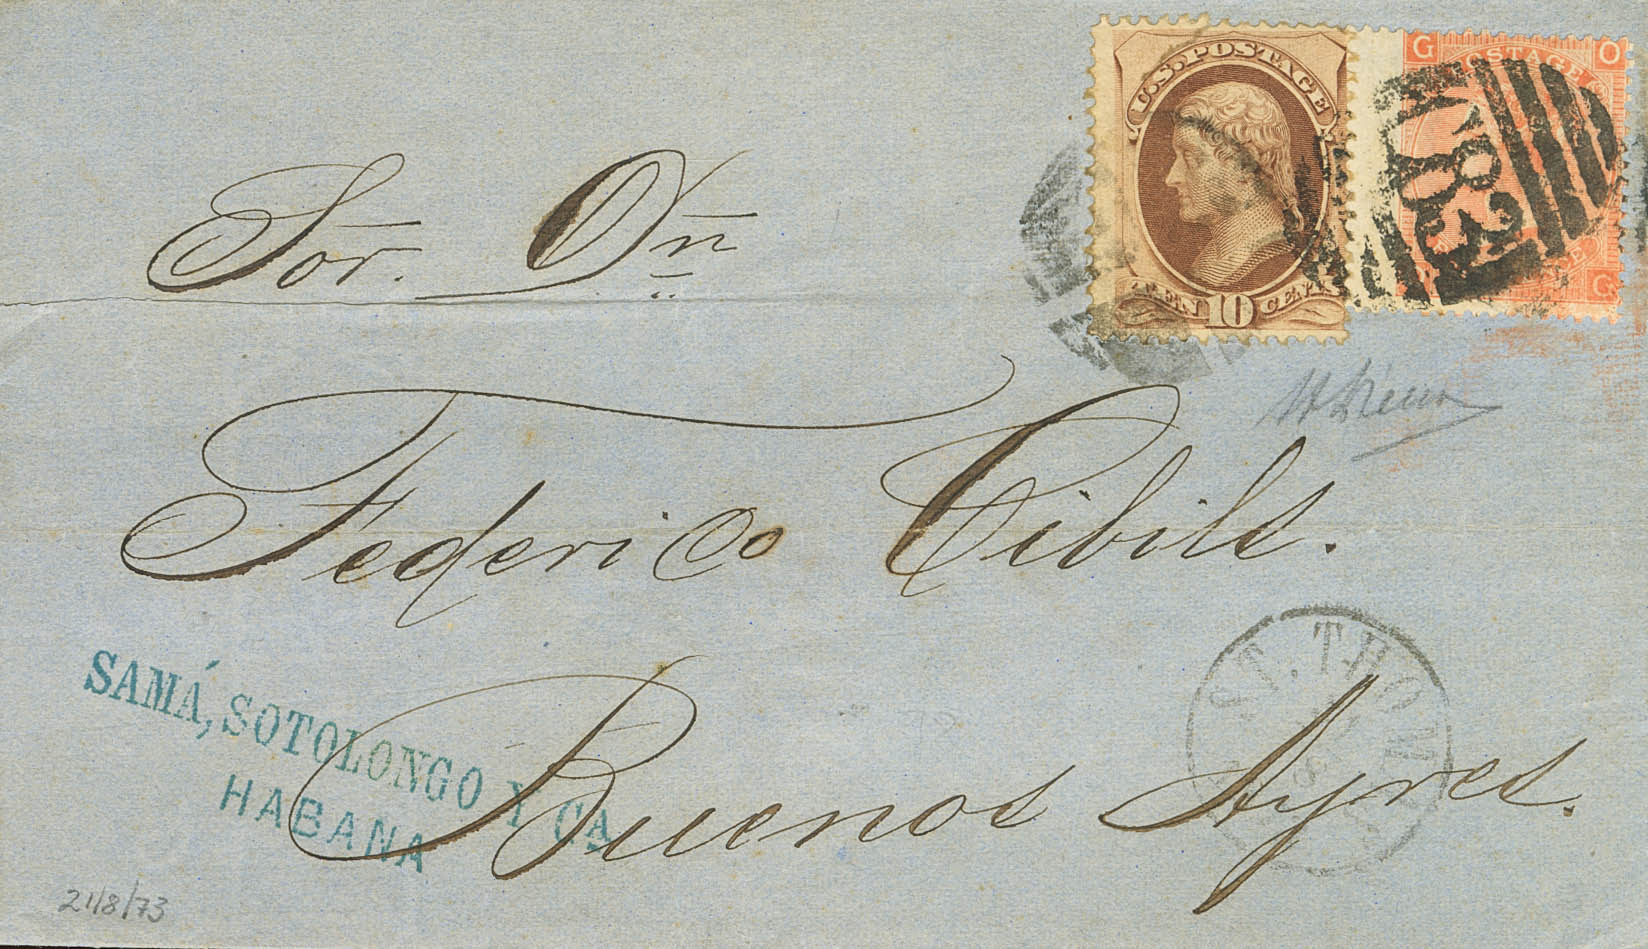 U.S. POSTAGE
TEN 10 CENTS
G O
POSTAGE
G
Sor. Dn
Federico Cibils.
Buenos Ayres.
SAMÁ, SOTOLONGO Y CA
HABANA
ST. THOMAS
21/8/73